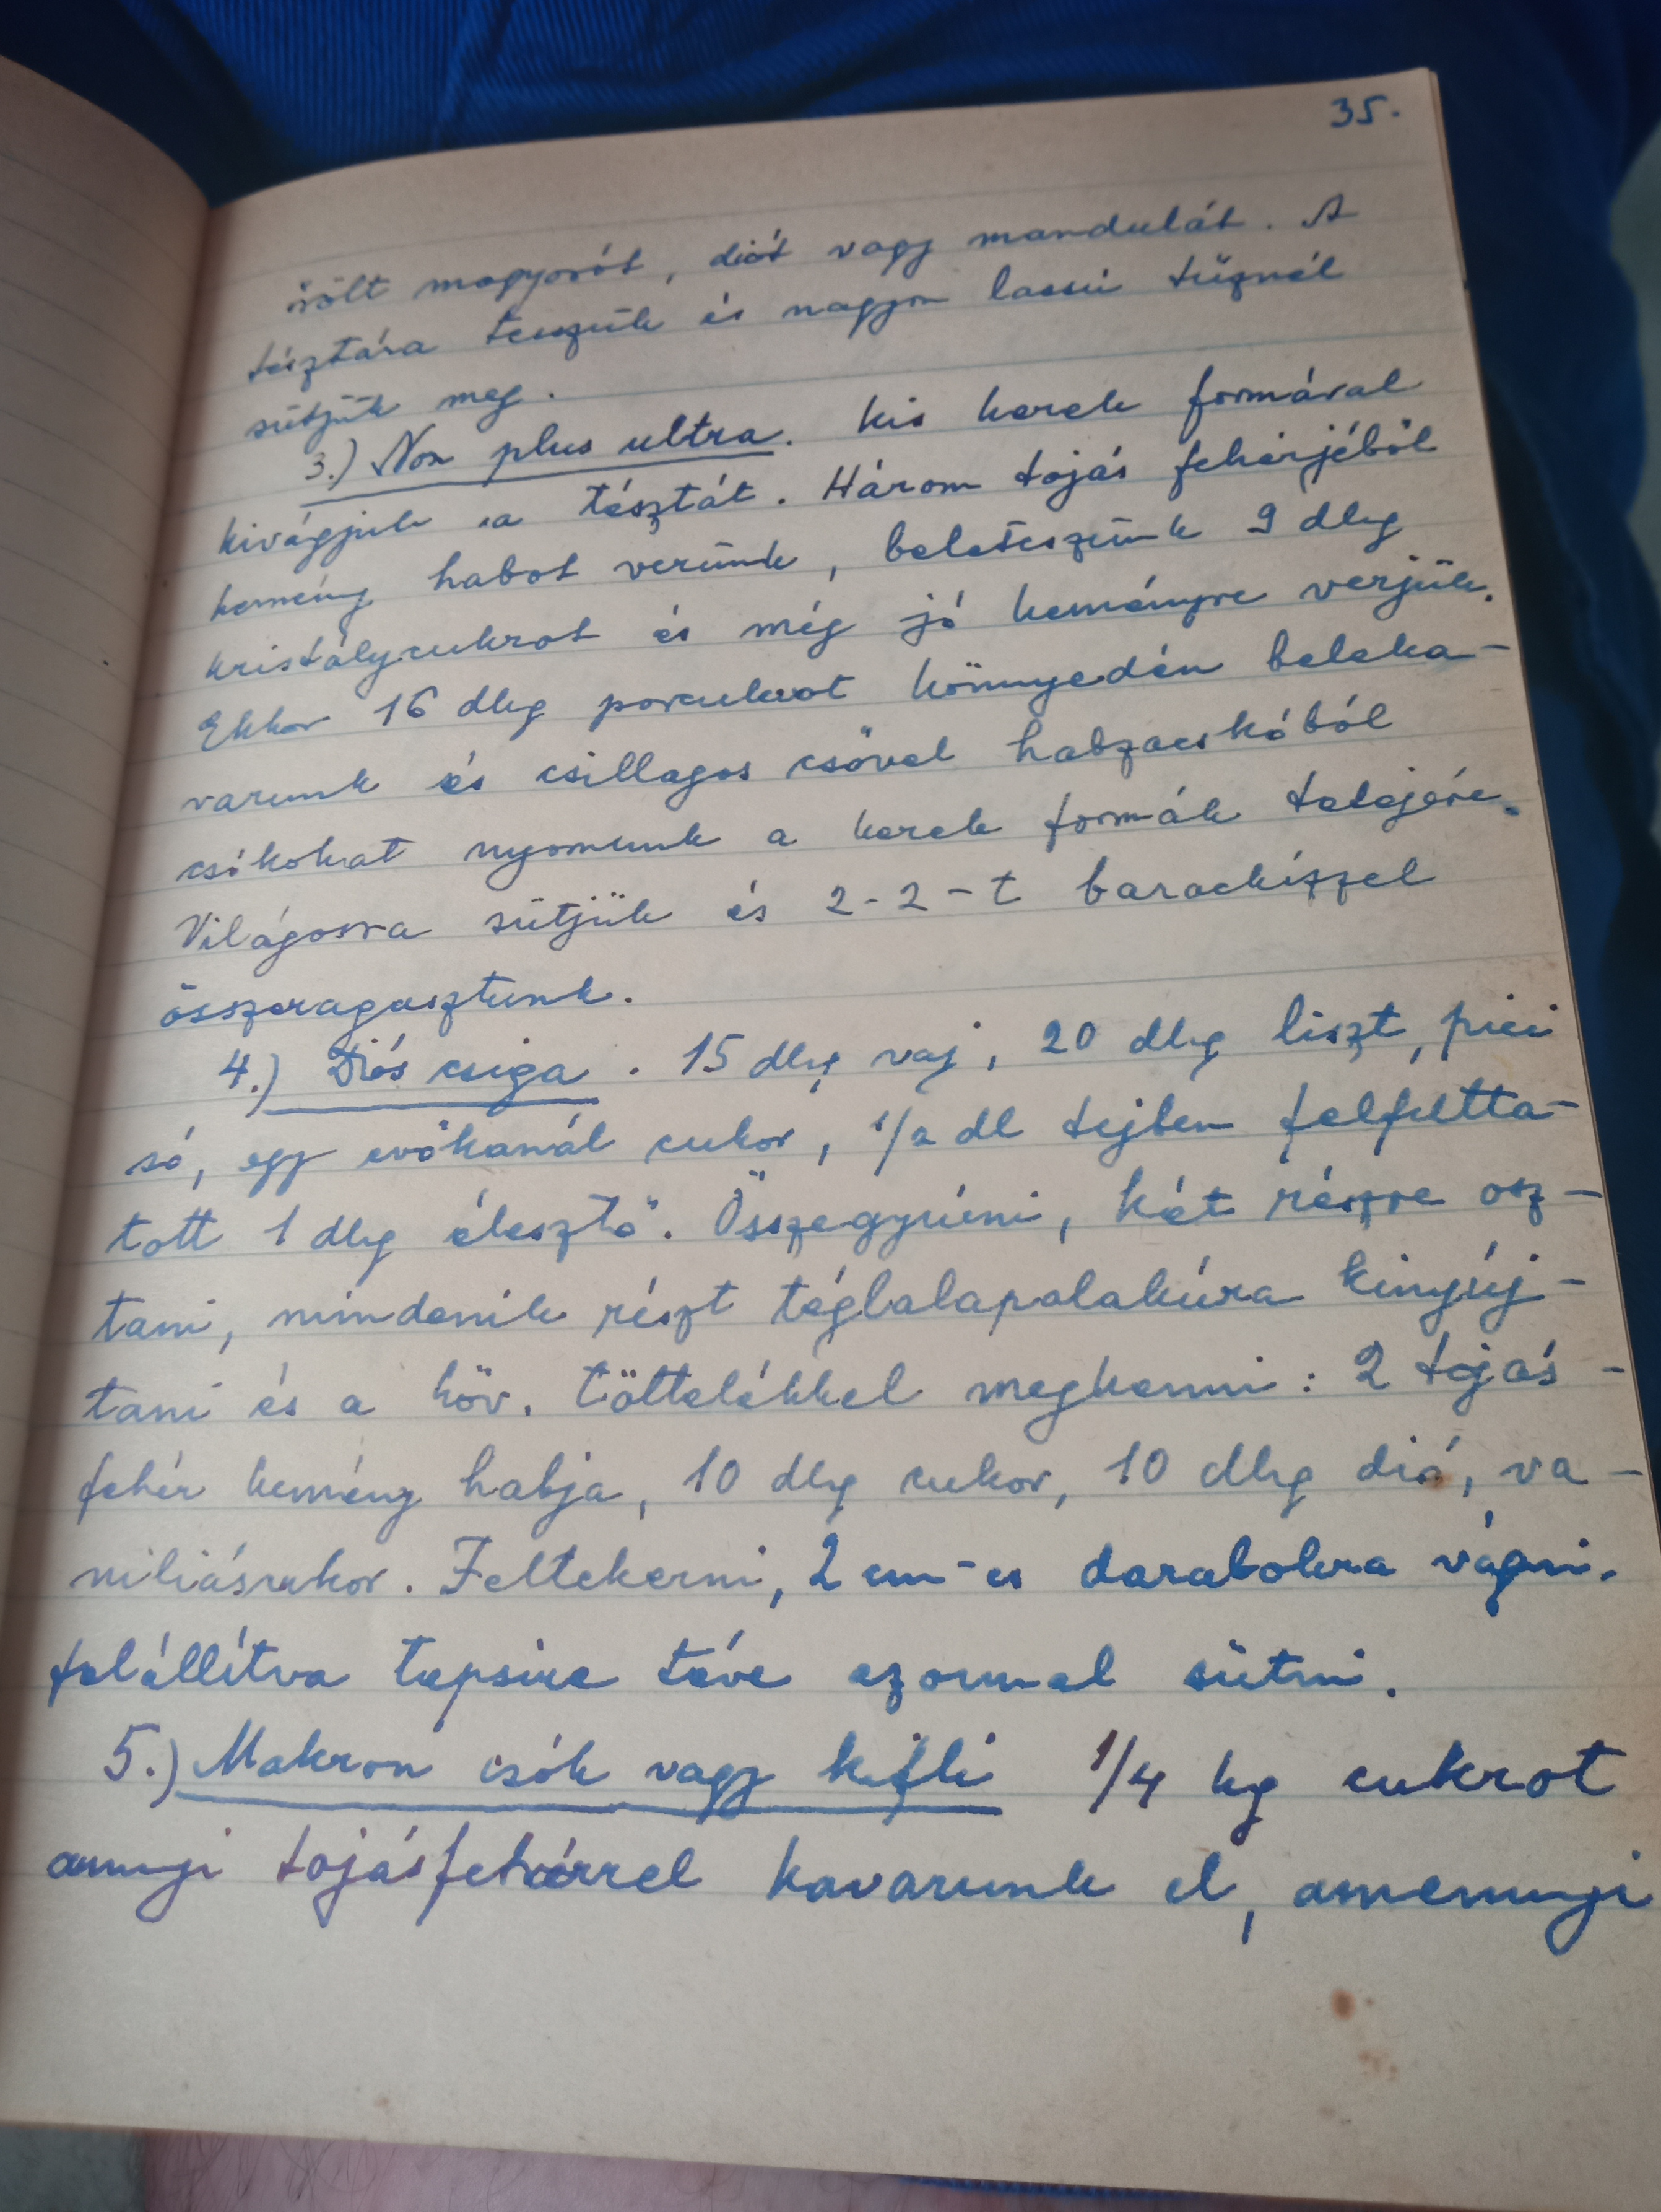 35.
őrölt mogyorót, diót vagy mandulát. A
tésztára tesszük és nagyon lassú tűznél
sütjük meg.
3.) Non plus ultra. Kis kerek formával
kivágjuk a tésztát. Három tojás fehérjéből
kemény habot verünk, beleteszünk 9 dkg
kristálycukrot és még jó keményre verjük.
Ekkor 16 dkg porcukrot könnyedén beleka-
varunk és csillagos csővel habzacskóból
csíkokat nyomunk a kerek formák tetejére.
Világosra sütjük és 2-2-t barackízzel
összeragasztunk.
4.) Diós csiga. 15 dkg vaj, 20 dkg liszt, pici
só, egy evőkanál cukor, 1/2 dl tejben felfutta-
tott 1 dkg élesztő. Összegyúrni, két részre osz-
tani, mindenik részt téglalapalakúra kinyúj-
tani és a köv. töltelékkel megkenni: 2 tojás-
fehér kemény habja, 10 dkg cukor, 10 dkg dió, va-
niliáscukor. Feltekerni, 2 cm-es darabokra vágni.
felállítva tepsire téve azonnal sütni.
5.) Makron csók vagy kifli 1/4 kg cukrot
annyi tojásfehérrel kavarunk el, amennyi